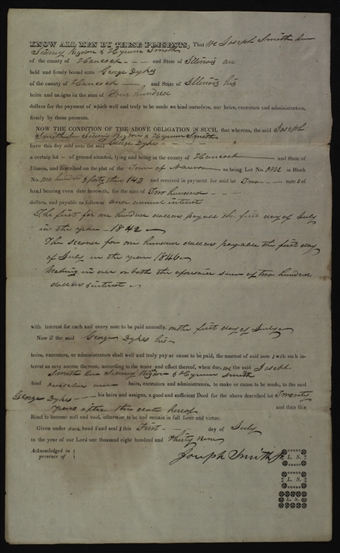 KNOW ALL MEN BY THESE PRESENTS; That We Joseph Smith Jun
Sidney Rigdon & Hyrum Smith
of the county of Hancock and State of Illinois are
held and firmly bound unto George Dykes
of the county of Hancock and State of Illinois his
heirs and assigns in the sum of Four hundred
dollars for the payment of which well and truly to be made we bind ourselves, our heirs, executors and administrators,
firmly by these presents.
NOW THE CONDITION OF THE ABOVE OBLIGATION IS SUCH, that whereas, the said Joseph
Smith Jun Sidney Rigdon & Hyrum Smith
have this day sold unto the said George Dykes
a certain lot of ground situated, lying and being in the county of Hancock and State of
Illinois, and described on the plat of the Town of Nauvoo as being Lot No. one in Block
No. one hundred & forty three 143 and received in payment for said lot Two notes of
hand bearing even date herewith, for the sum of Two hundred
dollars, and payable as follows and annual interest
The first for one hundred dollars payable the first day of July
in the year 1842
The second for one hundred dollars payable the first day
of July in the year 1846
Making in all on both the aforesaid sum of two hundred
dollars & interest
with interest for each and every note to be paid annually, on the first day of July
Now if the said George Dykes his
heirs, executors, or administrators shall well and truly pay or cause to be paid, the amount of said notes with each in-
terest as may accrue thereon, according to the tenor and effect thereof, when due, the said Joseph
Smith Jun Sidney Rigdon & Hyrum Smith
and heirs, executors and administrators, to make or cause to be made, to the said
George Dykes his heirs and assigns, a good and sufficient Deed for the share described lot Twenty
years after the date hereof and then this
Bond to become null and void, otherwise to be and remain in full force and virtue.
Given under hand and seal this First day of July
in the year of our Lord one thousand eight hundred and Thirty Nine
Acknowledged in
presence of
Joseph Smith Jr
L. S.
L. S.
L. S.